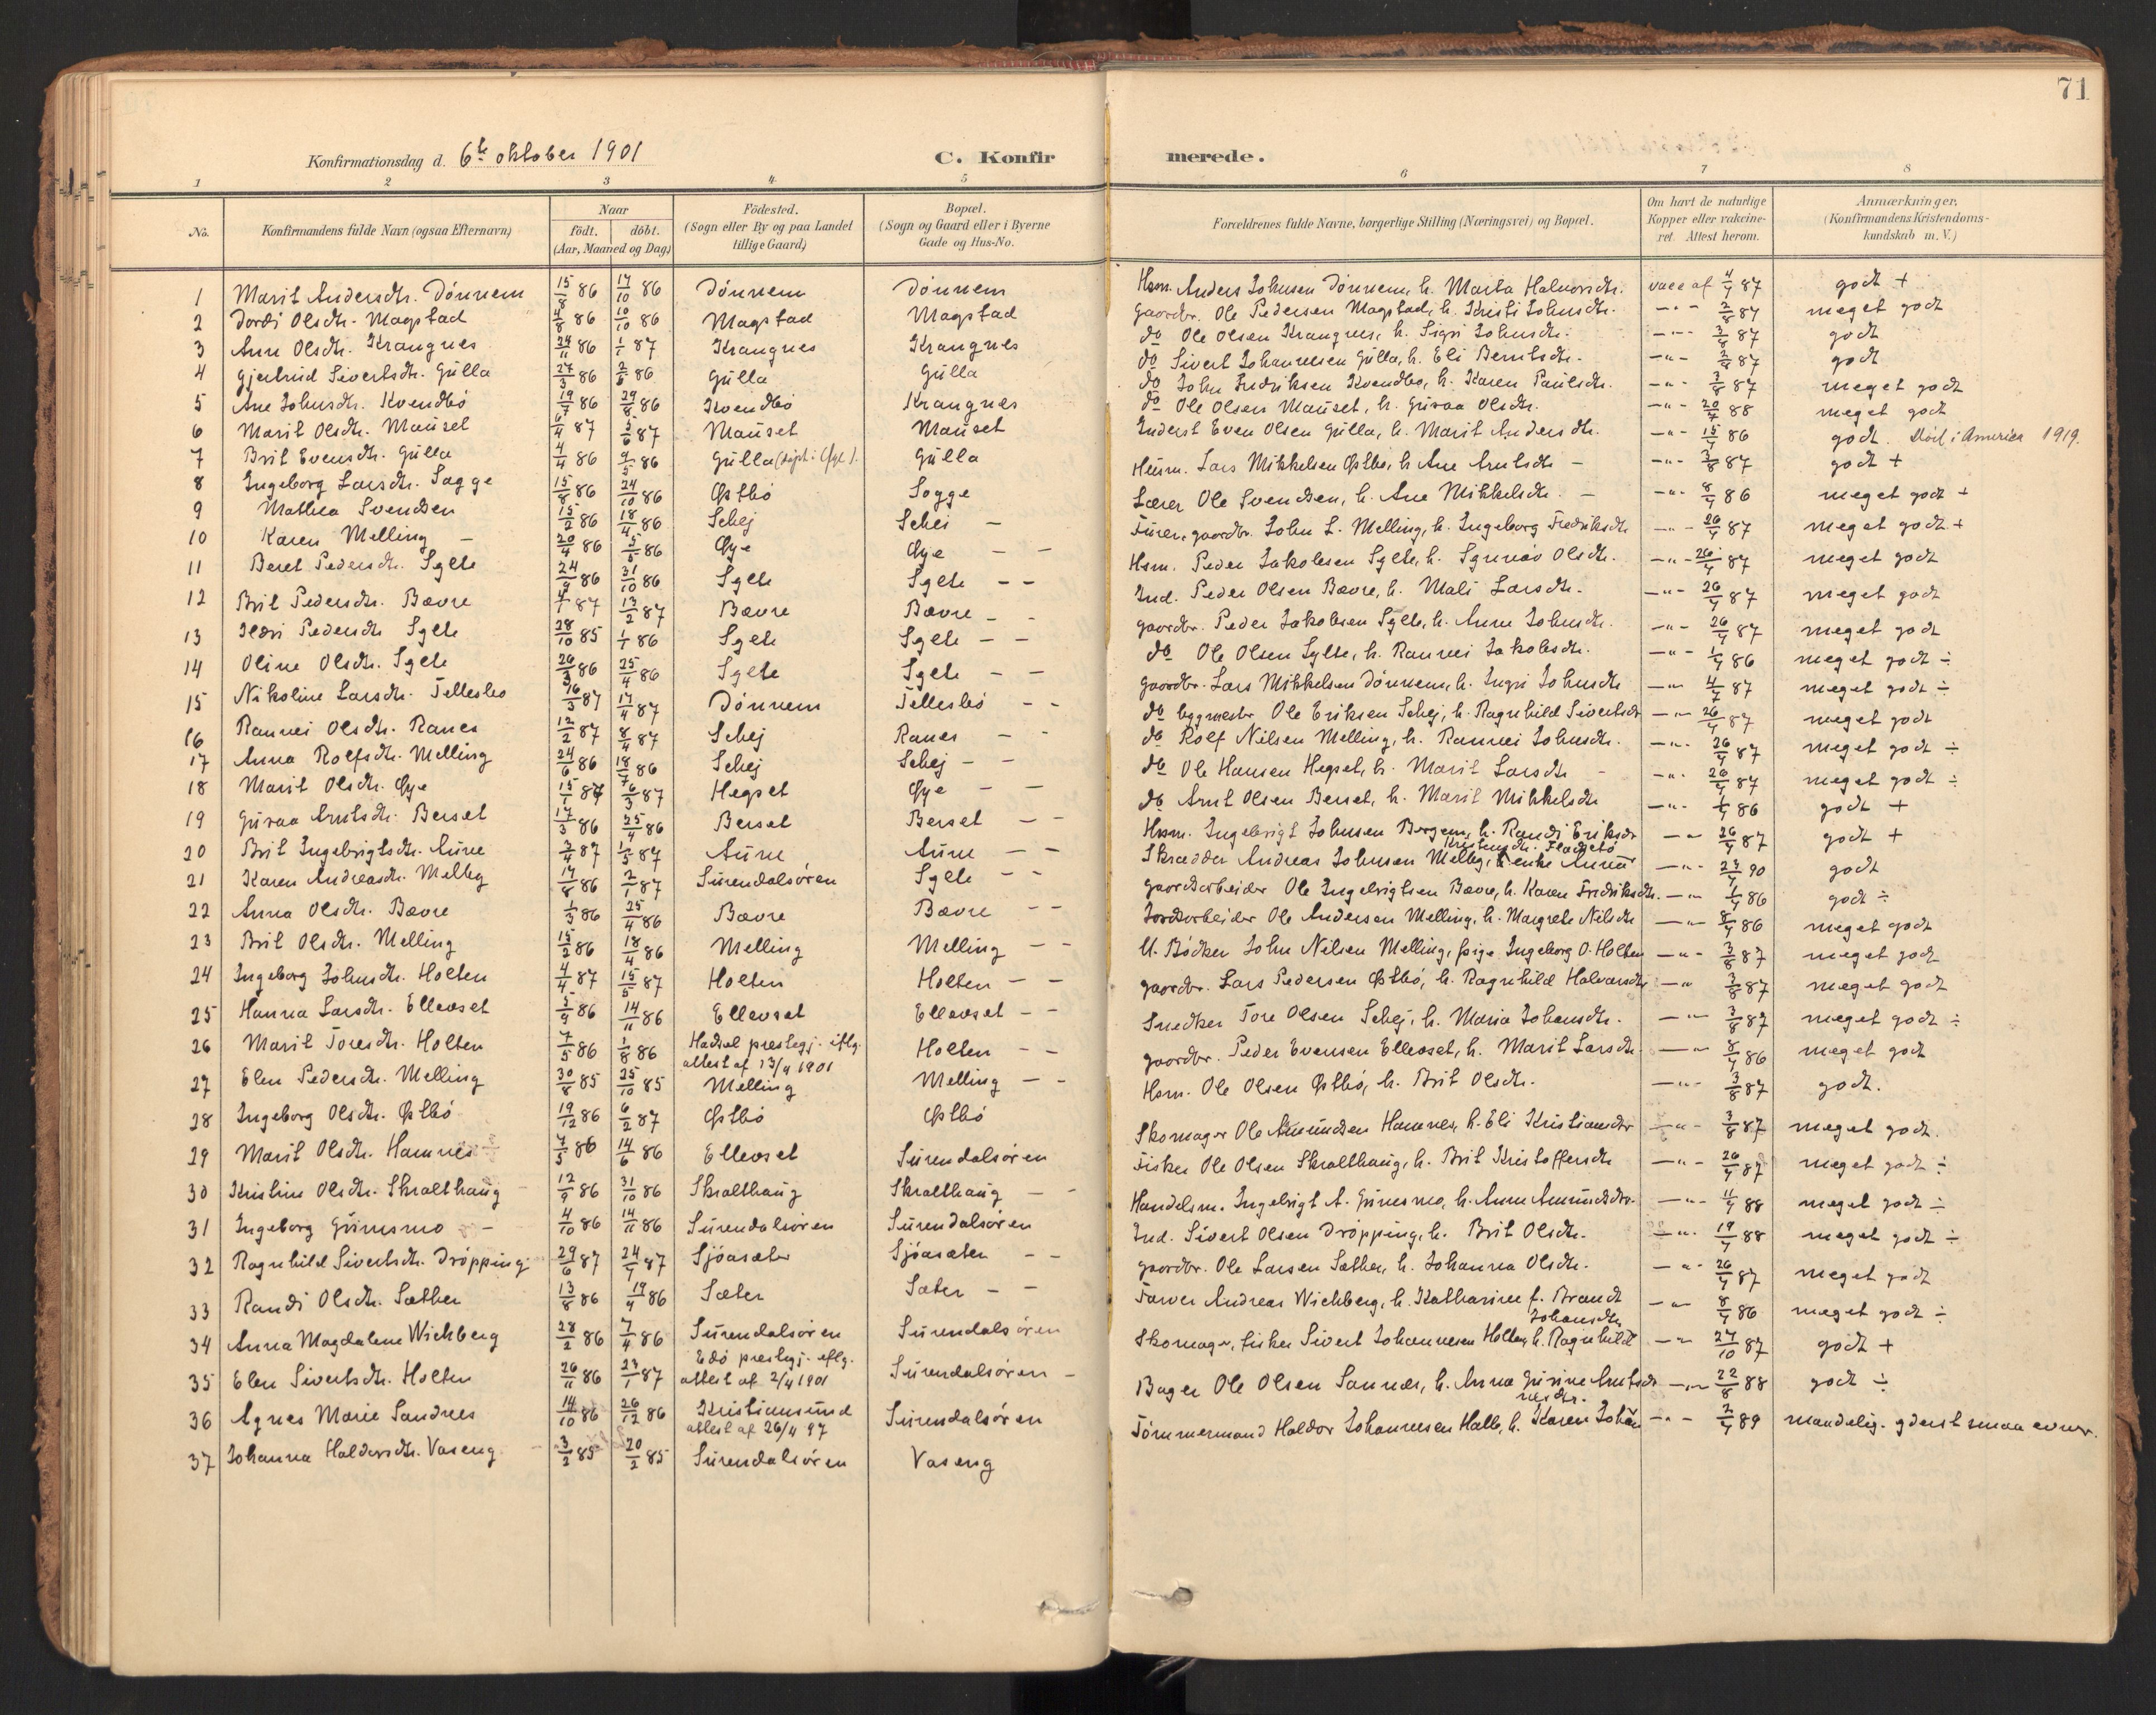 71
Konfirmationsdag d. 6te oktober 1901 C. Konfirmerede.
1 2 3 4 5 6 7 8
No. Konfirmandens fulde Navn (ogsaa Efternavn) Naar födt. döbt. (Aar, Maaned og Dag) Födested. (Sogn eller By og paa Landet tillige Gaard) Bopæl. (Sogn og Gaard eller i Byerne Gade og Hus-No. Forældrenes fulde Navne, borgerlige Stilling (Næringsvei) og Bopæl. Om havt de naturlige Kopper eller vakcineret. Attest herom. Anmærkninger. (Konfirmandens Kristendomskundskab m. V.)
1 Marit Andersdtr. Dönnem 15/8 86 17/10 86 Dönnem Dönnem Hsm. Anders Johnsen Dönnem, h. Marta Halvorsdtr. vacc af 4/7 87 godt +
2 Dordi Olsdtr. Magstad 4/8 86 10/10 86 Magstad Magstad gaardbr. Ole Pedersen Magstad, h. Kristi Johnsdtr. -"- 3/8 87 meget godt
3 Ane Olsdtr. Krangnes 24/11 86 1/1 87 Krangnes Krangnes do Ole Olsen Krangnes, h. Sigri Johnsdtr. -"- 3/8 87 godt
4 Gjertrud Sivertsdtr. Gulla 27/3 86 2/6 86 Gulla Gulla do Sivert Johannesen Gulla, h. Eli Berntsdtr. -"- 3/8 87 godt
5 Ane Johnsdtr. Kvendbö 19/7 86 29/8 86 Kvendbö Krangnes do John Fredriksen Kvendbö, h. Karen Paulsdtr. -"- 3/8 87 meget godt
6 Marit Olsdtr. Mauset 6/4 87 5/6 87 Mauset Mauset do Ole Olsen Mauset, h. Guraa Olsdtr. -"- 20/7 88 meget godt
7 Brit Evensdtr. Gulla 4/4 86 9/5 86 Gulla (döpt i Öye). Gulla Inderst Even Olsen Gulla, h. Marit Andersdtr. -"- 15/7 86 godt. Död i Amerika 1919.
8 Ingeborg Larsdtr. Sogge 15/8 86 24/10 86 Östbö Sogge Husm. Lars Mikkelsen Östbö, h. Ane Arntsdtr - -"- 3/8 87 godt +
9 Mathea Svendsen 15/2 86 18/4 86 Schej Schei - Lærer Ole Svendsen, h. Ane Mikkelsdtr. - -"- 8/7 86 meget godt +
10 Karen Melling - 20/4 86 5/5 86 Öye Öye - - Furer, gaardbr. John L. Melling, h. Ingeborg Fredriksdtr -"- 26/7 87 meget godt +
11 Beret Pedersdtr. Sylte 24/9 86 31/10 86 Sylte Sylte - - Hsm. Peder Jakobsen Sylte, h. Synnöv Olsdtr. -"- 26/7 87 meget godt
12 Brit Pedersdtr. Bævre 4/1 87 13/2 87 Bævre Bævre - - Ind. Peder Olsen Bævre, h. Mali Larsdtr. -"- 26/7 87 meget godt
13 Pedersdtr Sylte 28/10 85 1/1 86 Sylte Sylte - - gaardbr. Peder Jakobsen Sylte, h. Anne Johnsdtr. -"- 26/7 87 meget godt
14 Oline Olsdtr. Sylte 26/3 86 25/4 86 Sylte Sylte - - do Ole Olsen Sylte, h. Rannei Jakobsdtr. -"- 1/7 86 meget godt ÷
15 Nikoline Larsdtr. Tellesbö 16/3 87 17/4 87 Dönnem Tellesbö - - gaardbr. Lars Mikkelsen Dönnem, h. Ingri Johnsdtr -"- 4/7 87 meget godt ÷
16 Rannei Olsdtr. Ranes 12/2 87 8/4 87 Schej Ranes - - do byggmester Ole Eriksen Schej, h. Ragnhild Sivertsdtr -"- 26/7 87 meget godt
17 Anna Rolfsdtr. Melling 24/6 86 18/7 86 Schej Schej - - do Rolf Nilsen Melling, h. Rannei Johnsdtr. -"- 26/7 87 meget godt ÷
18 Marit Olsdtr. Öye 15/1 87 6/3 87 Hegset Öye - - do Ole Hansen Hegset, h. Marit Larsdtr - -"- 26/7 87 meget godt ÷
19 Guraa Arntsdtr. Berset 17/3 86 25/4 86 Berset Berset - - do Arnt Olsen Berset, h. Marit Mikkelsdtr -"- 1/7 86 godt +
20 Brit Ingebrigtsdtr. Aune 3/4 87 1/5 87 Aune Aune - - Hsm. Ingebrigt Johnsen Bergem, h. Randi Eriksdr -"- 26/7 87 godt +
21 Karen Andreasdtr. Melby 14/8 86 2/1 87 Surendalsören Sylte - - Skrædder Andreas Johnsen Melby, enke Anna Kristensdtr. -"- 23/7 90 godt
22 Anna Olsdtr. Bævre 1/3 86 25/4 86 Bævre Bævre - - gaardarbeider Ole Ingebrigtsen Bævre, h. Karen Fredriksdtr. -"- 1/7 86 godt ÷
23 Brit Olsdtr. Melling 15/2 86 18/4 86 Melling Melling - - Jordarbeider Ole Andersen Melling, h. Margrete Nilsdtr -"- 8/7 86 meget godt
24 Ingeborg Johnsdtr. Holten 4/4 87 15/5 87 Holten Holten - - U. Bödker John Nilsen Melling, pige Ingeborg O. Holten -"- 3/8 87 meget godt
25 Hanna Larsdtr. Ellevset 5/9 86 14/11 86 Ellevset Ellevset - - gaardbr. Lars Pedersen Östbö, h. Ragnhild Halvorsdtr -"- 3/8 87 meget godt
26 Marit Toresdtr. Holten 7/5 86 1/8 86 Hadsel prestegj. iflg. attest af 13/4 1901 Holten - - Snedker Tore Olsen Schej, h. Maria Johansdtr. -"- 3/8 87 meget godt ÷
27 Elen Pedersdtr. Melling 30/8 85 25/10 85 Melling Melling - - gaardbr. Peder Evensen Ellevset, h. Marit Larsdtr. -"- 8/7 86 meget godt
28 Ingeborg Olsdtr. Östbö 19/12 86 6/2 87 Östbö Östbö Hsm. Ole Olsen Östbö, h. Brit Olsdtr. -"- 3/8 87 godt.
29 Marit Olsdtr. Hamnes 7/5 86 14/6 86 Ellevset Surendalsören Skomager Ole Amundsen Hamnes, h. Eli Kristiansdtr -"- 3/8 87 meget godt.
30 Kristine Olsdtr. Skralthaug 12/9 86 31/10 86 Skralthaug Skralthaug - - Fisker Ole Olsen Skralthaug, h. Brit Kristoffersdtr -"- 26/7 87 meget godt ÷
31 Ingeborg Grimsmo - 4/10 86 14/11 86 Surendalsören Surendalsören Handelsm. Ingebrigt A. Grimsmo, h. Anne Amundsdtr. -"- 11/7 88 meget godt ÷
32 Ragnhild Sivertsdtr. Dröpping 29/6 87 24/7 87 Sjöasæter Sjöasæter - - Ind. Sivert Olsen Dröpping, h. Brit Olsdtr. -"- 19/7 88 meget godt ÷
33 Randi Olsdtr. Sæther 13/8 86 19/9 86 Sæter Sæter - - gaardbr. Ole Larsen Sæther, h. Johanna Olsdtr. -"- 26/7 87 meget godt
34 Anna Magdalene Wichberg 28/2 86 7/4 86 Surendalsören Surendalsören Farver Andreas Wichberg, h. Katharine f. Brandt -"- 8/7 86 meget godt ÷
35 Elen Sivertsdtr. Holten 26/11 86 23/1 87 Edö prestegj. iflg. attest af 2/4 1901 Surendalsören - Skomager, fisker Sivert Johannesen Holten, h. Ragnhild Johansdtr. -"- 27/10 87 godt +
36 Agnes Marie Sandnes 14/10 86 26/12 86 Kristiansund attest af 26/4 97 Surendalsören Bager Ole Olsen Sannes, h. Anna Gurine Arntsdr -"- 22/8 88 godt ÷
37 Johanna Haldorsdtr. Vaseng 3/2 85 20/2 85 Surendalsören Vaseng Tömmermand Haldor Johannesen Halle, h. Karen Johannesdtr. -"- 2/7 89 maadelig. yderst smaa evner.